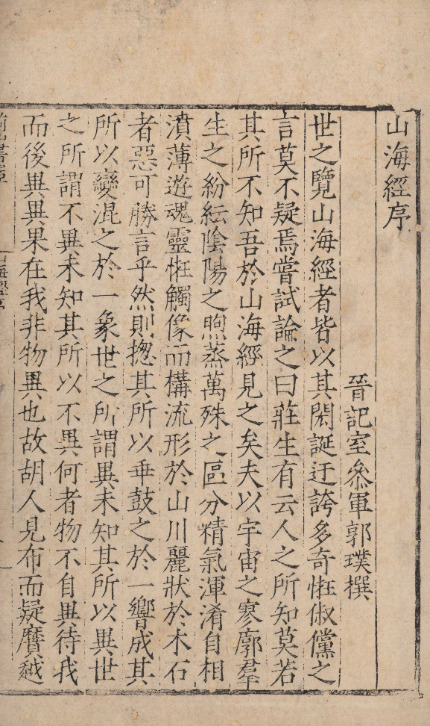 山海經序
晉記室叅軍郭璞撰
世之覽山海經者皆以其閎誕迂誇多奇怪俶儻之
言莫不疑焉嘗試論之曰莊生有云人之所知莫若
其所不知吾於山海經見之矣夫以宇宙之寥廓羣
生之紛紜陰陽之煦蒸萬殊之區分精氣渾淆自相
濆薄遊魂靈怪觸像而構流形於山川麗狀於木石
者惡可勝言乎然則揔其所以乖鼓之於一響成其
所以變混之於一象世之所謂異未知其所以異世
之所謂不異未知其所以不異何者物不自異待我
而後異異果在我非物異也故胡人見布而疑黂越